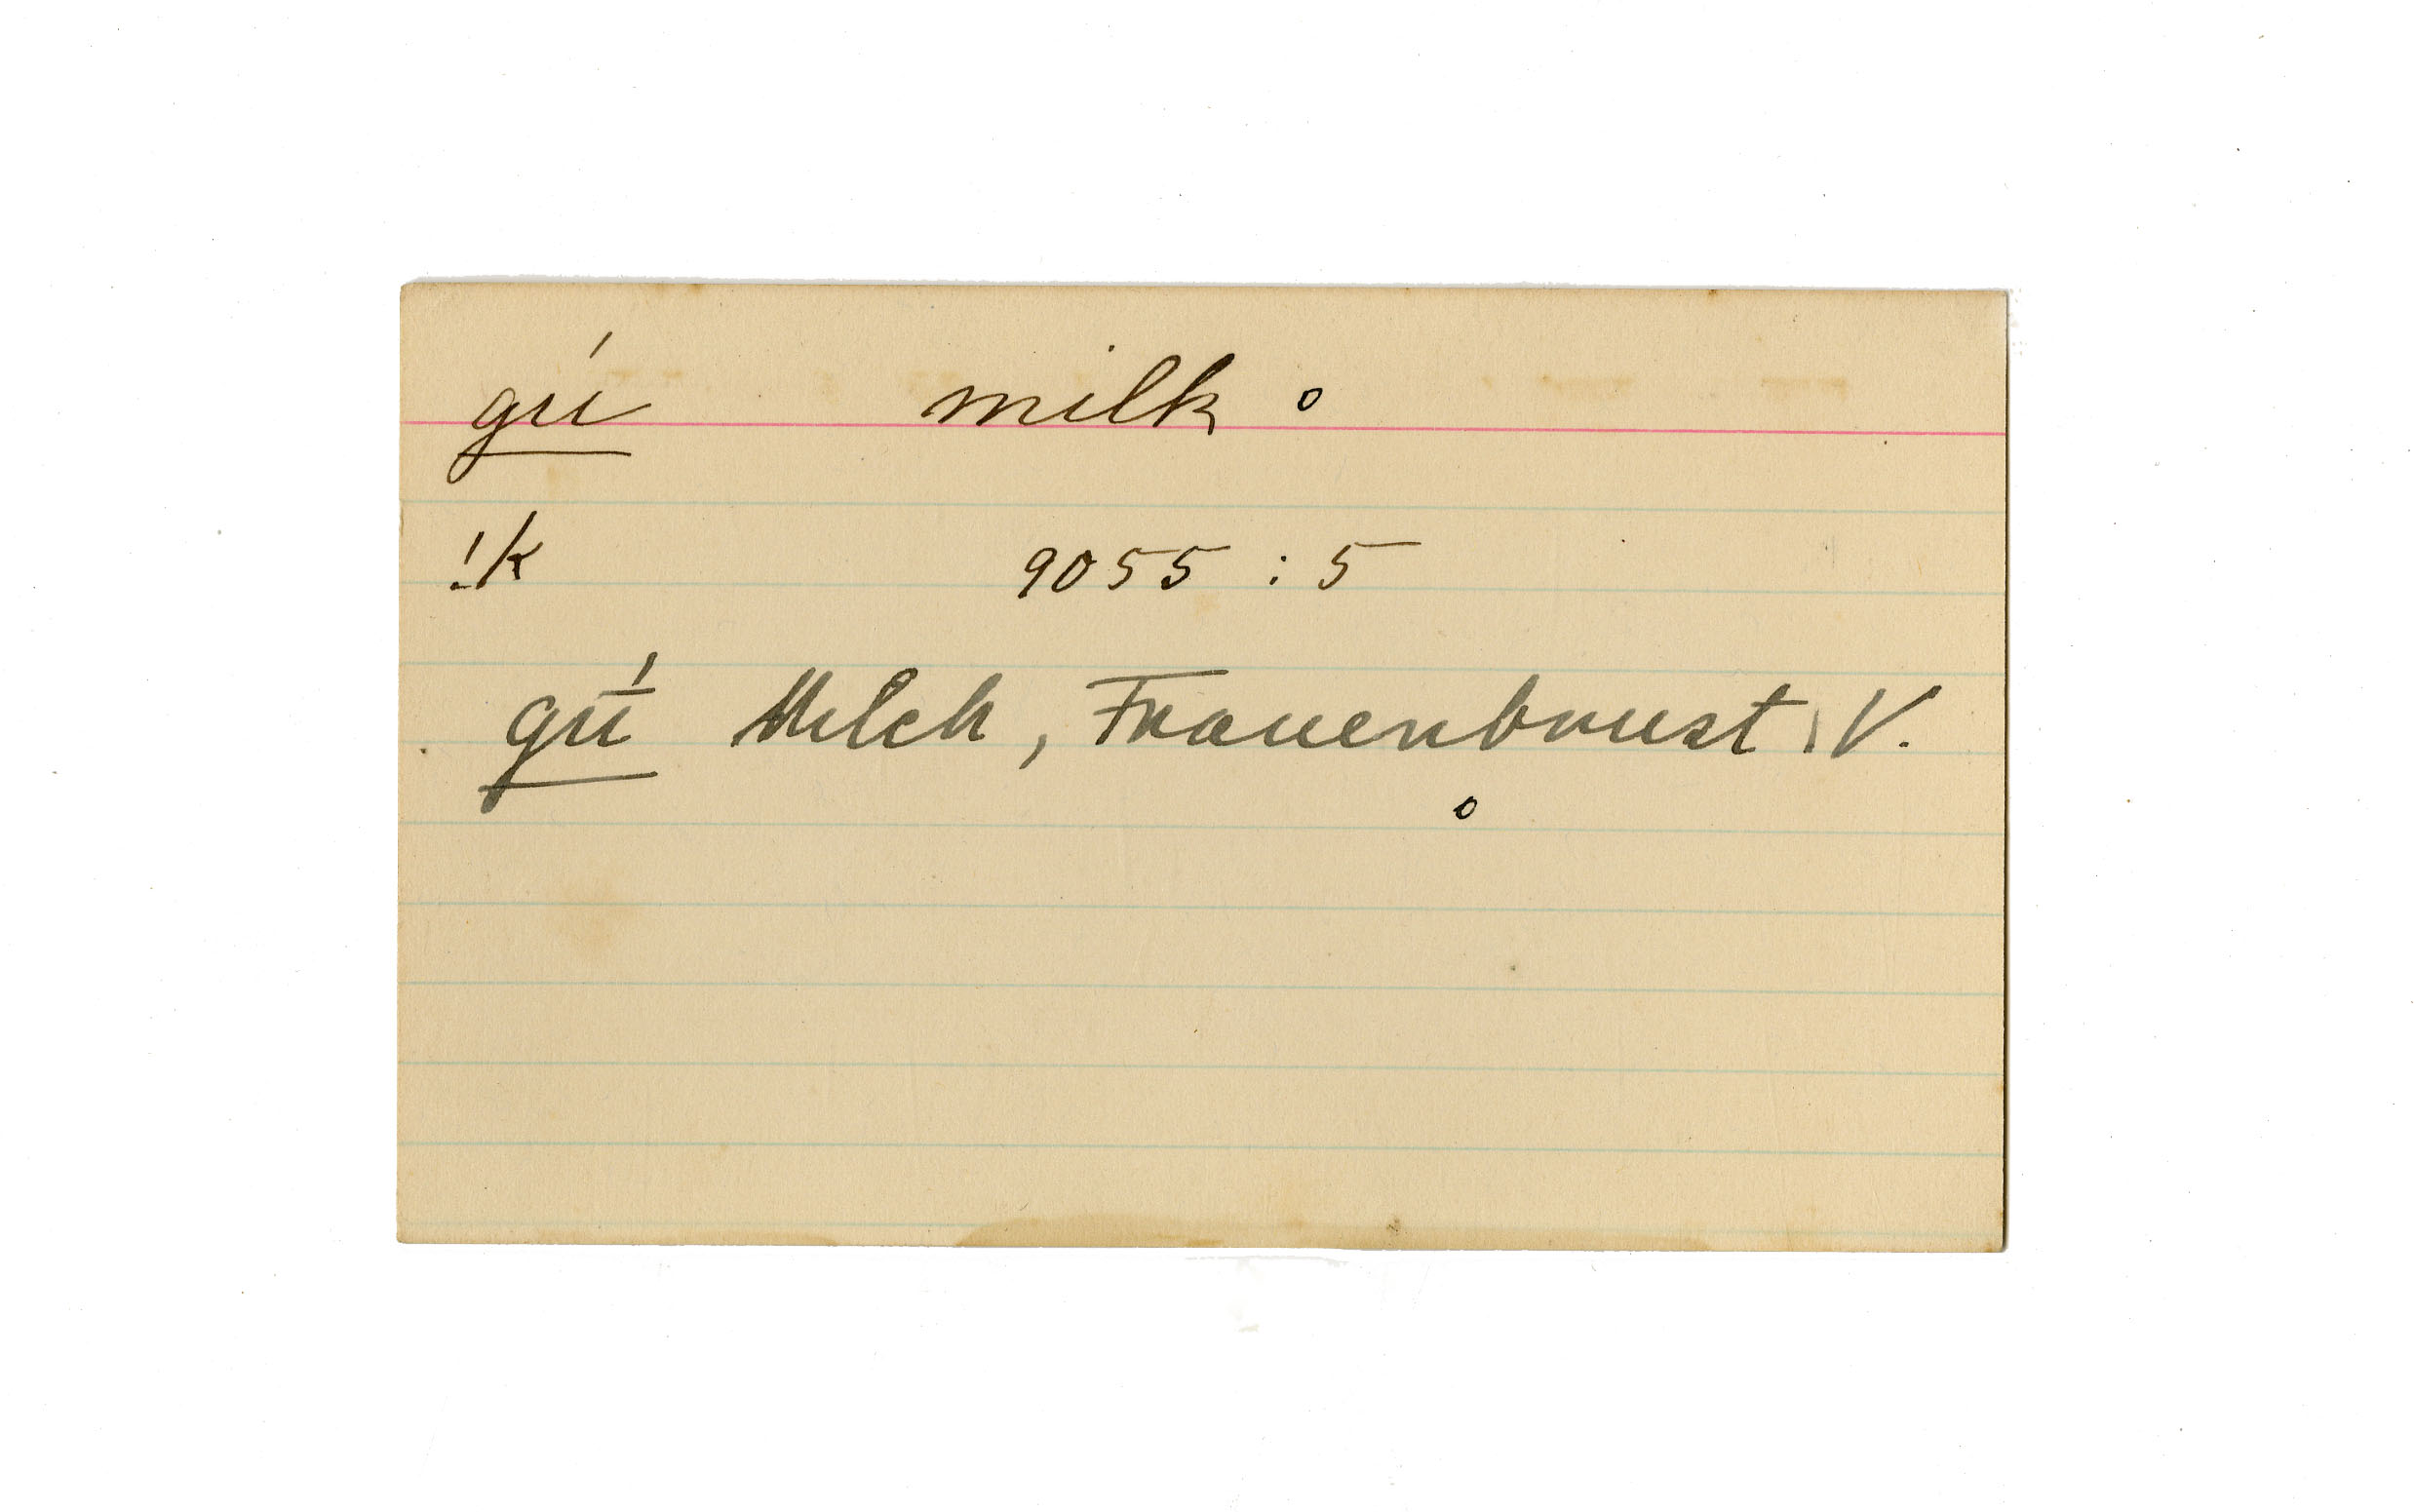 gú milk o
!k 9055 : 5
gū́ Milch, Frauenbrust, V.
o